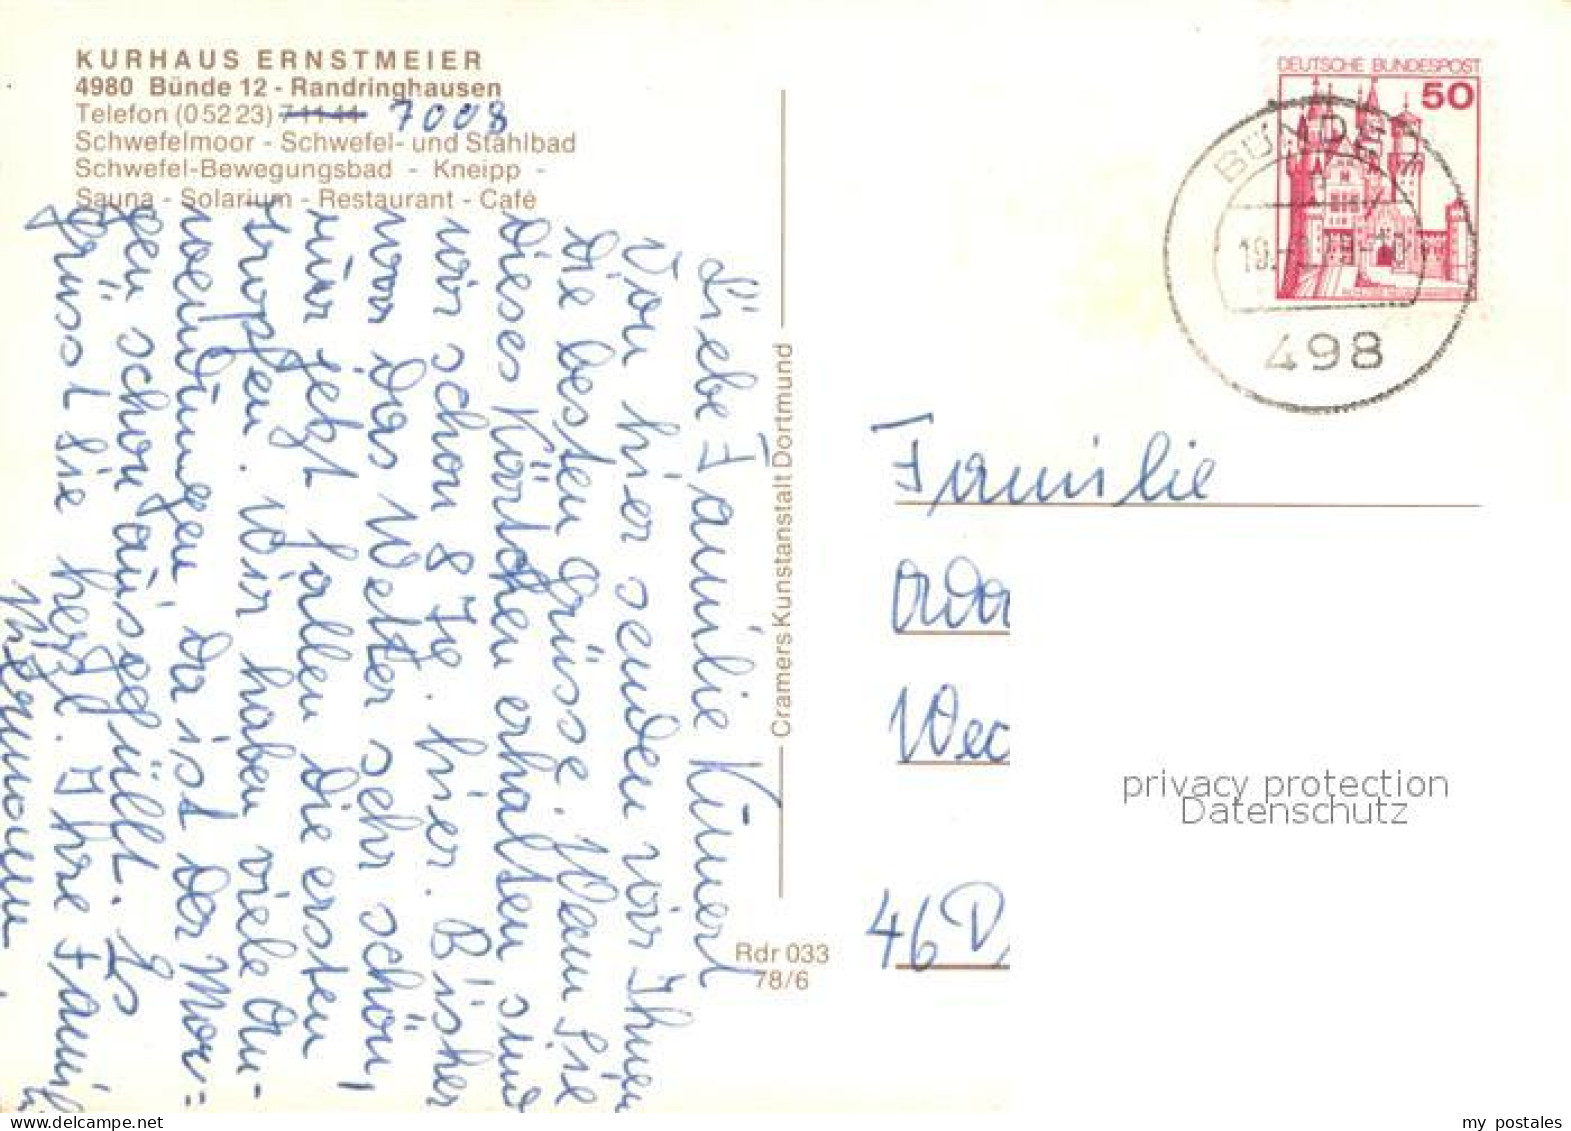 KURHAUS ERNSTMEIER
4980 Bünde 12 - Randringhausen
Telefon (05223) 71144 7008
Schwefelmoor - Schwefel- und Stahlbad
Schwefel-Bewegungsbad - Kneipp -
Sauna - Solarium - Restaurant - Café
Liebe Familie Künert
Von hier senden wir Ihnen
die besten Grüsse. Wenn Sie
dieses Kärtchen erhalten sind
wir schon 8 Tg. hier. Bisher
war das Wetter sehr schön,
nur jetzt fallen die ersten
Tropfen. Wir haben viele An-
wendungen, da ist der Mor=
gen schon ausgefüllt. Es
grüsst Sie herzl. Ihre Famil
Cramers Kunstanstalt Dortmund
Rdr 033
78/6
DEUTSCHE BUNDESPOST
50
BÜNDE
498
Familie
Wec
46 D
privacy protection
Datenschutz
my postales